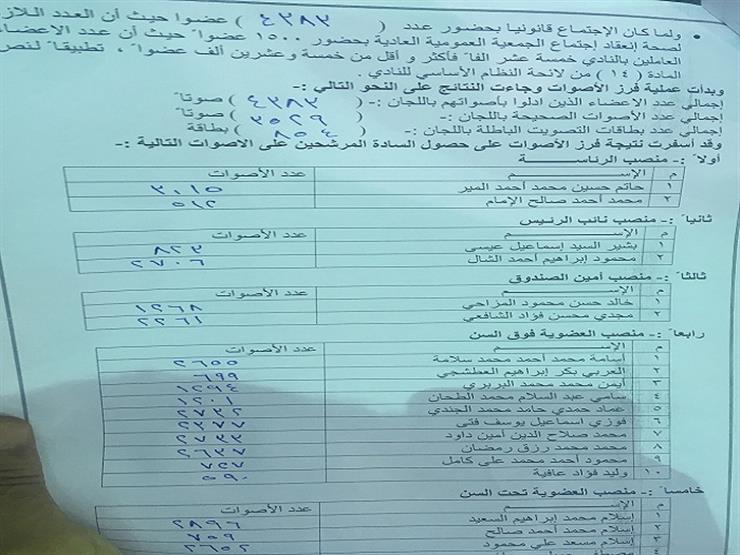 ولما كان الإجتماع قانونيا بحضور عدد ( ٤٣٨٣ ) عضوا حيث أن العدد اللاز
لصحة إنعقاد إجتماع الجمعية العمومية العادية بحضور ١٥٠٠ عضوا حيث أن عدد الاعضاء
العاملين بالنادي خمسة عشر الفا فأكثر و أقل من خمسة وعشرين ألف عضوا ، تطبيقا لنص
المادة ( ١٤ ) من لائحة النظام الأساسي للنادي .
وبدأت عملية فرز الأصوات وجاءت النتائج على النحو التالي :-
إجمالي عدد الاعضاء الذين ادلوا بأصواتهم باللجان :- ( ٤٣٨٣ ) صوتا
إجمالي عدد الأصوات الصحيحة باللجان :- ( ٣٥٢٩ ) صوتا
إجمالي عدد بطاقات التصويت الباطلة باللجان :- ( ٨٥٤ ) بطاقة
وقد أسفرت نتيجة فرز الأصوات على حصول السادة المرشحين على الاصوات التالية :-
أولا :- منصب الرئاسة
م الإسم عدد الأصوات
١ حاتم حسين محمد أحمد المير ٣٠١٥
٢ محمد أحمد صالح الإمام ٥١٢
ثانيا :- منصب نائب الرئيس
م الإسم عدد الأصوات
١ بشير السيد إسماعيل عيسى ٨٢٣
٢ محمود إبراهيم أحمد الشال ٢٧٠٦
ثالثا :- منصب أمين الصندوق
م الإسم عدد الأصوات
١ خالد حسن محمود المزاحي ١٢٦٨
٢ مجدي محسن فؤاد الشافعي ٢٢٦١
رابعا :- منصب العضوية فوق السن
م الإسم عدد الأصوات
١ أسامة محمد أحمد محمد سلامة ٢٦٥٥
٢ العربي بكر إبراهيم العطشجي ٦٩٩
٣ أيمن محمد محمد البربري ١٢٩٤
٤ سامي عبد السلام محمد الطحان ١٢٠١
٥ عماد حمدي حامد محمد الجندي ٢٧٣٢
٦ فوزي اسماعيل يوسف فتى ٢٣٧٧
٧ محمد صلاح الدين أمين داود ٢٧٣٣
٨ محمد محمد رزق رمضان ٢٦٣٧
٩ محمود أحمد محمد على كامل ٧٢٧
١٠ وليد فؤاد عافية ٥٩٠
خامسا :- منصب العضوية تحت السن
م الإسم عدد الأصوات
١ إسلام محمد إبراهيم السعيد ٢٨٩٦
٢ إسلام محمد أحمد صالح ٧٥٩
٣ إسلام مسعد علي محمود ٢٦٥٢